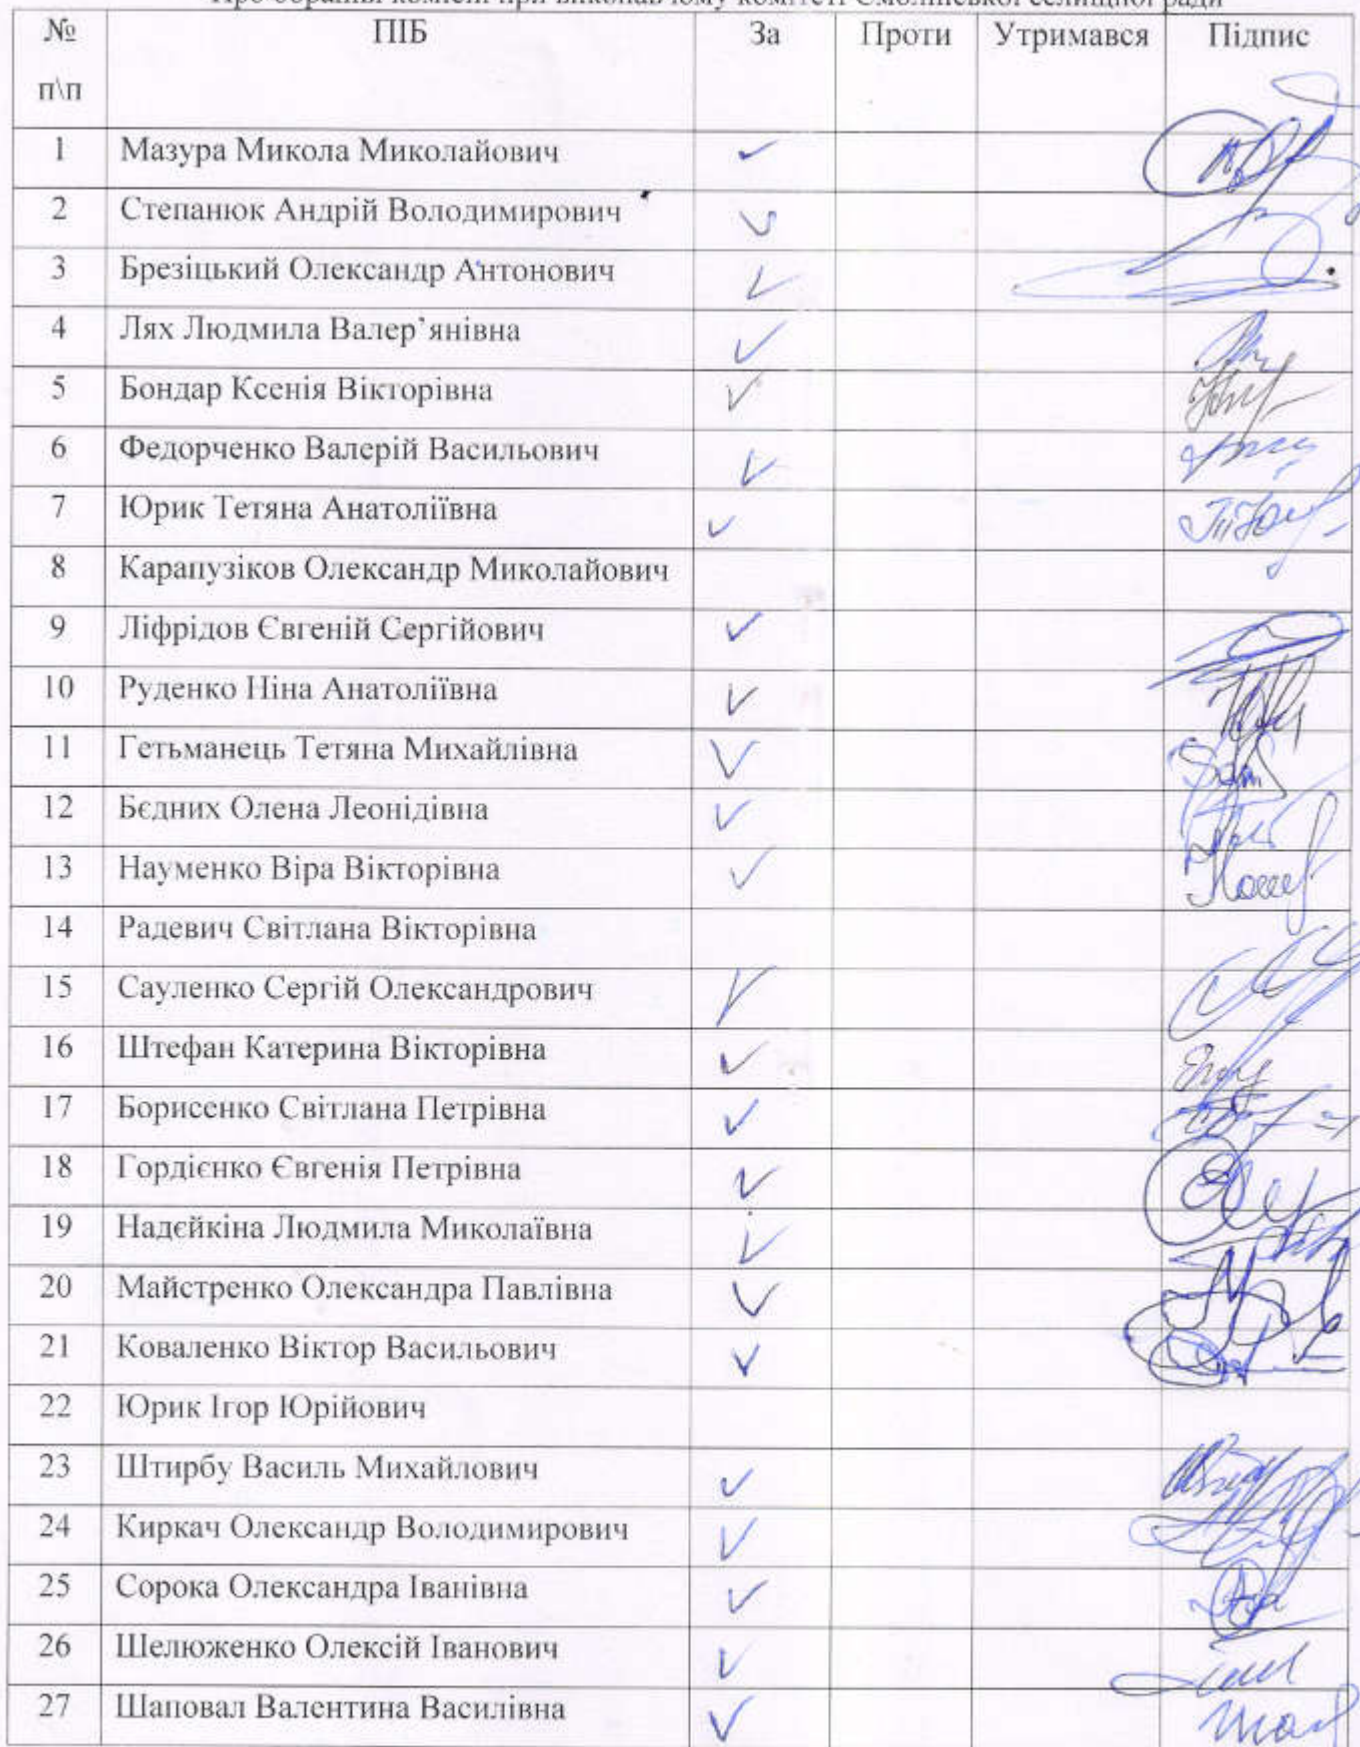 Про обрання комісії при виконавчому комітеті Смолінської селищної ради
№ п\п ПІБ За Проти Утримався Підпис
1 Мазура Микола Миколайович
2 Степанюк Андрій Володимирович
3 Брезіцький Олександр Антонович
4 Лях Людмила Валер’янівна
5 Бондар Ксенія Вікторівна
6 Федорченко Валерій Васильович
7 Юрик Тетяна Анатоліївна
8 Карапузіков Олександр Миколайович
9 Ліфрідов Євгеній Сергійович
10 Руденко Ніна Анатоліївна
11 Гетьманець Тетяна Михайлівна
12 Бєдних Олена Леонідівна
13 Науменко Віра Вікторівна
14 Радевич Світлана Вікторівна
15 Сауленко Сергій Олександрович
16 Штефан Катерина Вікторівна
17 Борисенко Світлана Петрівна
18 Гордієнко Євгенія Петрівна
19 Надєйкіна Людмила Миколаївна
20 Майстренко Олександра Павлівна
21 Коваленко Віктор Васильович
22 Юрик Ігор Юрійович
23 Штирбу Василь Михайлович
24 Киркач Олександр Володимирович
25 Сорока Олександра Іванівна
26 Шелюженко Олексій Іванович
27 Шаповал Валентина Василівна